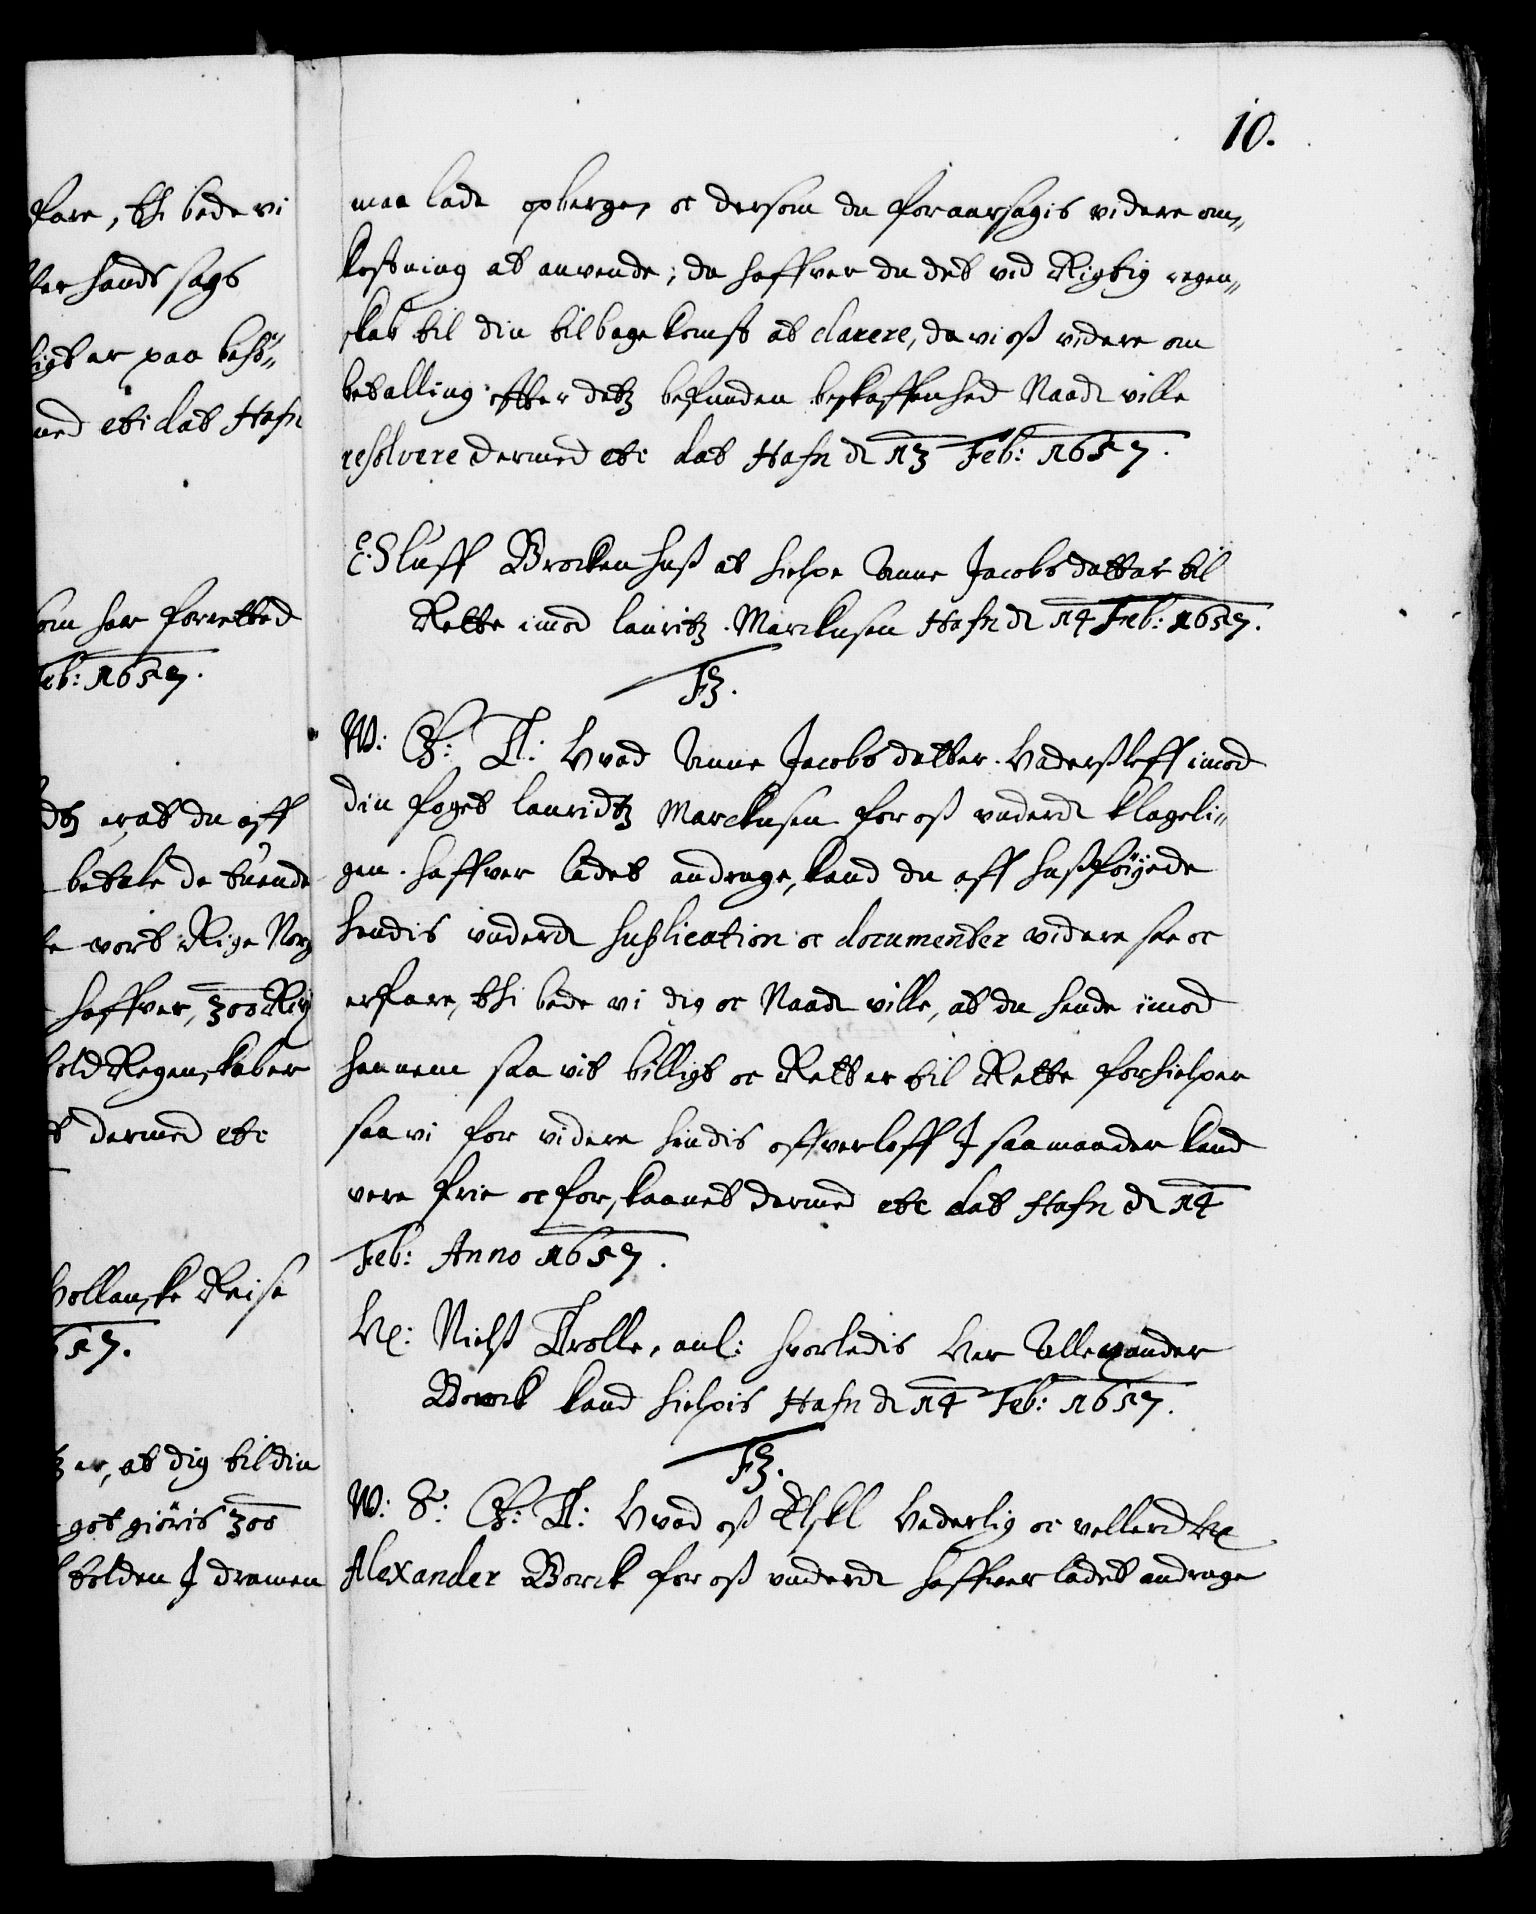 10.
fare, thi bede vi
ter hands sags
ligt er paa besö„
med etc dat Hafn
som her forretted
eb: 1657.
dtz er, at du aff
betale de tuende
te vort Rige Norg
haffver, 300 Rix
hold Regenskaber
dermed etc
hollanske Reise
657.
tz er, at dig til din
got giöris 300
tolden J dramen
maa lade opberge, oc dersom du foraarsagis videre om„
kostning at anvende; da haffver du det ved Rigtig regen„
skab til din tilbage komst at clarere, da vi oss videre om
betalling effter detz befunden beskaffenhed Naadl ville
resolvere dermed etc dat Hafn dl 13 Feb: 1657.
E. Sluff Brockenhuss at hielpe Anne Jacobs datter til
Rette imod lauritz Marckusen Hafn dl 14 Feb: 1657.
F3.
W: G: T: Hvad Anne Jacobs datter Haderssleff imod
din foget lauridtz Marckusen for oss underdl klageli„
gen haffver ladet andrage, kand du aff hossföyede
hendis underdl suplication oc documenter videre see oc
erfare, thi bede vi dig oc Naadl ville, at du hende imod
hannem saa vit billigt oc Ret er til Rette forhielper
saa vi for videre hendis offverløff J saa maader kand
vere frie oc forskaanet dermed etc dat Hafn dl 14
Feb: Anno 1657.
Hr: Nielss Trolle, anl: hvorledis Her Allexander
Borck kand hielpis Hafn dl 14 Feb: 1657.
F3.
W: S: G: T: Hvad oss Elskl Hederlig oc vellerd Hr
Alexander Borck for oss underdl haffver ladet andrage